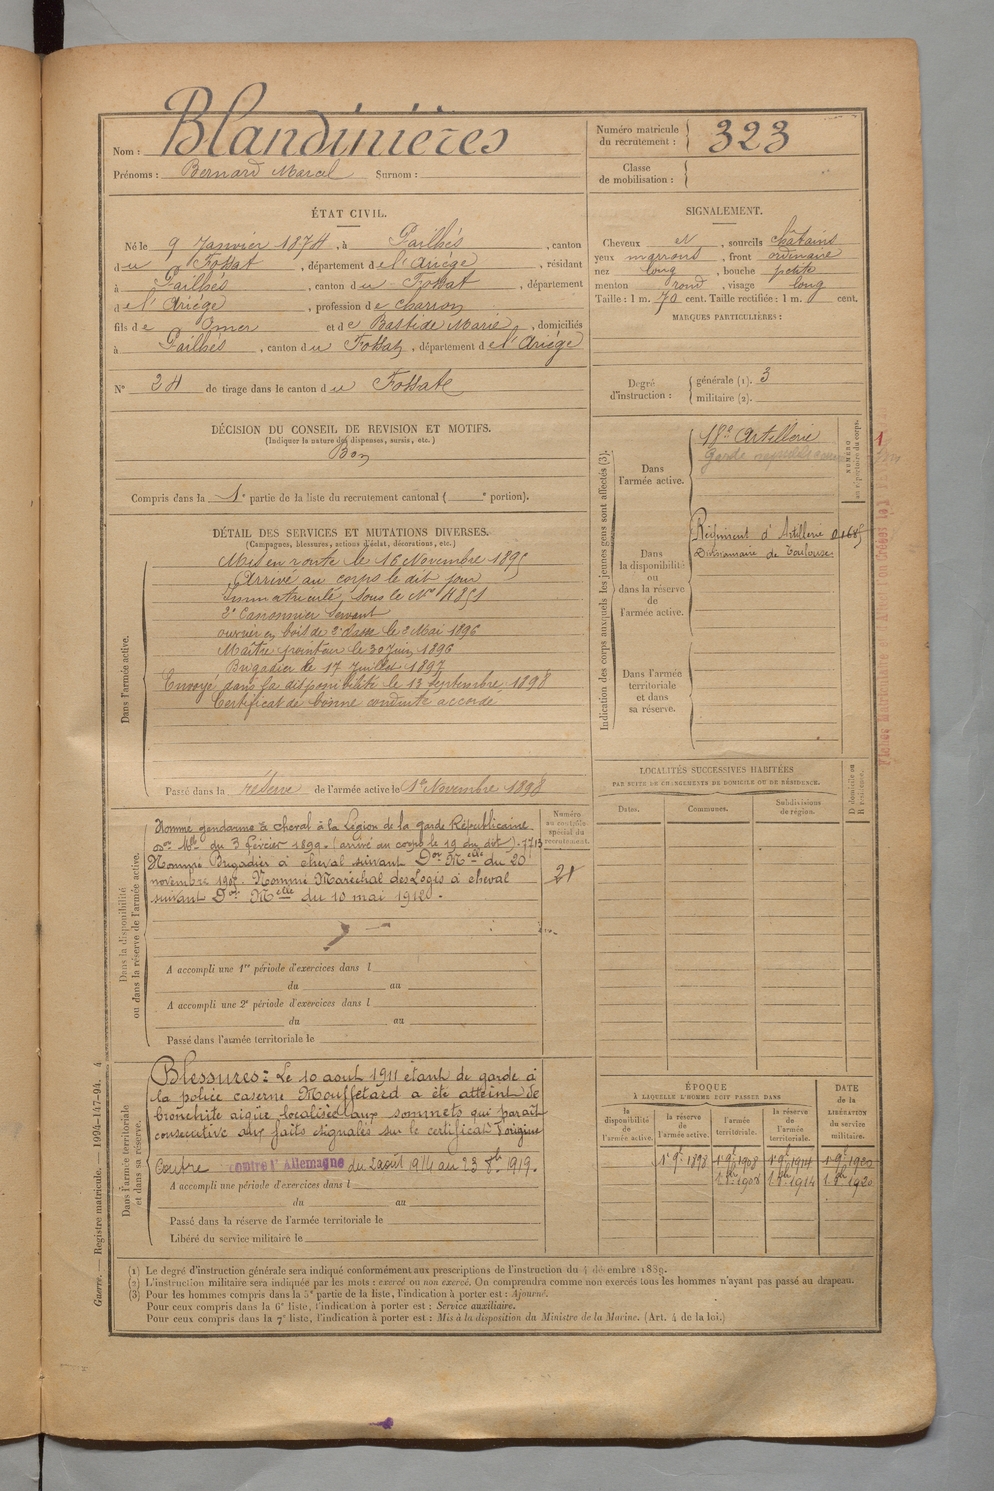 Blandinières
Nom :
Prénoms : Bernard Marcel Surnom :
Numéro matricule du recrutement : 323
Classe de mobilisation :
ÉTAT CIVIL.
Né le 9 Janvier 1874, à Pailhés, canton
du Fossat, département de l'Ariége, résidant
à Pailhés, canton du Fossat, département
de l'Ariége, profession de charron
fils de Omer et de Bastide Marie, domiciliés
à Pailhés, canton du Fossat, département de l'Ariége
N° 24 de tirage dans le canton du Fossat
SIGNALEMENT.
Cheveux et, sourcils châtains
yeux marrons, front ordinaire
nez long, bouche petite
menton rond, visage long
Taille : 1 m. 70 cent. Taille rectifiée : 1 m. cent.
MARQUES PARTICULIÈRES :
Degré d'instruction : générale (1). 3
militaire (2).
DÉCISION DU CONSEIL DE REVISION ET MOTIFS.
(Indiquer la nature des dispenses, sursis, etc.)
Bon
Compris dans la 1e partie de la liste du recrutement cantonal ( e portion).
DÉTAIL DES SERVICES ET MUTATIONS DIVERSES.
(Campagnes, blessures, actions d'éclat, décorations, etc.)
Dans l'armée active.
Mis en route le 16 Novembre 1895
Arrivé au corps le dit jour
Immatriculé sous le N° 4851
2e Canonnier servant
ouvrier en bois de 2e classe le 2 Mai 1896
Maître pointeur le 30 Juin 1896
Brigadier le 17 Juillet 1897
Envoyé dans la disponibilité le 13 Septembre 1898
Certificat de bonne conduite accordé
Passé dans la réserve de l'armée active le 1er Novembre 1898
Indication des corps auxquels les jeunes gens sont affectés (3).
Dans l'armée active.
18e Artillerie
Garde républicaine
NUMÉRO au répertoire du corps.
Dans la disponibilité ou dans la réserve de l'armée active.
Régiment d'Artillerie
Divisionnaire de Toulouse
Dans l'armée territoriale et dans sa réserve.
LOCALITÉS SUCCESSIVES HABITÉES
PAR SUITE DE CHANGEMENTS DE DOMICILE OU DE RÉSIDENCE.
Dates.
Communes.
Subdivisions de région.
D domicile ou R résidence.
Dans la disponibilité ou dans la réserve de l'armée active.
Numéro au contrôle spécial du recrutement.
Nommé gendarme à cheval à la Légion de la garde Républicaine
Don Mlle du 3 février 1899. (arrivé au corps le 19 du dit). 7713
Nommé Brigadier à cheval suivant Don Melle du 20
novembre 1907. Nommé Maréchal des Logis à cheval
suivant Don Melle du 10 mai 1912.
A accompli une 1re période d'exercices dans l
du au
A accompli une 2e période d'exercices dans l
du au
Passé dans l'armée territoriale le
Dans l'armée territoriale et dans sa réserve.
Blessures : Le 10 aout 1911 étant de garde à
la police caserne Mouffetard a été atteint de
bronchite aigüe localisée aux sommets qui paraît
consécutive aux faits signalés sur le certificat d'origine
Contre contre l'Allemagne du 2 août 914 au 23 8bre 1919.
A accompli une période d'exercices dans l
du au
Passé dans la réserve de l'armée territoriale le
Libéré du service militaire le
ÉPOQUE
À LAQUELLE L'HOMME DOIT PASSER DANS
la disponibilité de l'armée active.
la réserve de l'armée active.
l'armée territoriale.
la réserve de l'armée territoriale.
DATE de la LIBÉRATION du service militaire.
1er 9bre 1898 1er 9bre 1908 1er 9bre 1914 1er 9bre 1920
(1) Le degré d'instruction générale sera indiqué conformément aux prescriptions de l'instruction du 4 décembre 1889.
(2) L'instruction militaire sera indiquée par les mots : exercé ou non exercé. On comprendra comme non exercés tous les hommes n'ayant pas passé au drapeau.
(3) Pour les hommes compris dans la 5e partie de la liste, l'indication à porter est : Ajourné.
Pour ceux compris dans la 6e liste, l'indication à porter est : Service auxiliaire.
Pour ceux compris dans la 7e liste, l'indication à porter est : Mis à la disposition du Ministre de la Marine. (Art. 4 de la loi.)
Guerre. — Registre matricule. — 1994-147-94. 4